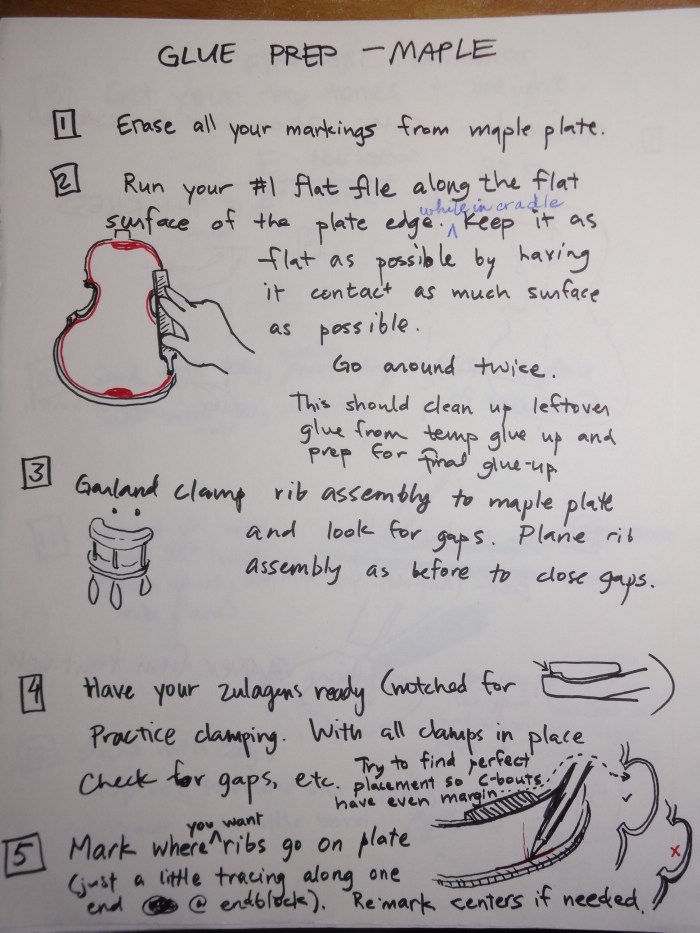 GLUE PREP - MAPLE
1 Erase all your markings from maple plate.
2 Run your #1 flat file along the flat
surface of the plate edge. while in cradle Keep it as
flat as possible by having
it contact as much surface
as possible.
Go around twice.
This should clean up leftover
glue from temp glue up and
prep for final glue-up
3 Garland clamp rib assembly to maple plate
and look for gaps. Plane rib
assembly as before to close gaps.
4 Have your zulagens ready (notched for )
Practice clamping. With all clamps in place
Check for gaps, etc.
Try to find perfect
placement so C-bouts
have even margin
5 Mark where you want ribs go on plate
(just a little tracing along one
end @ endblock). Re-mark centers if needed.